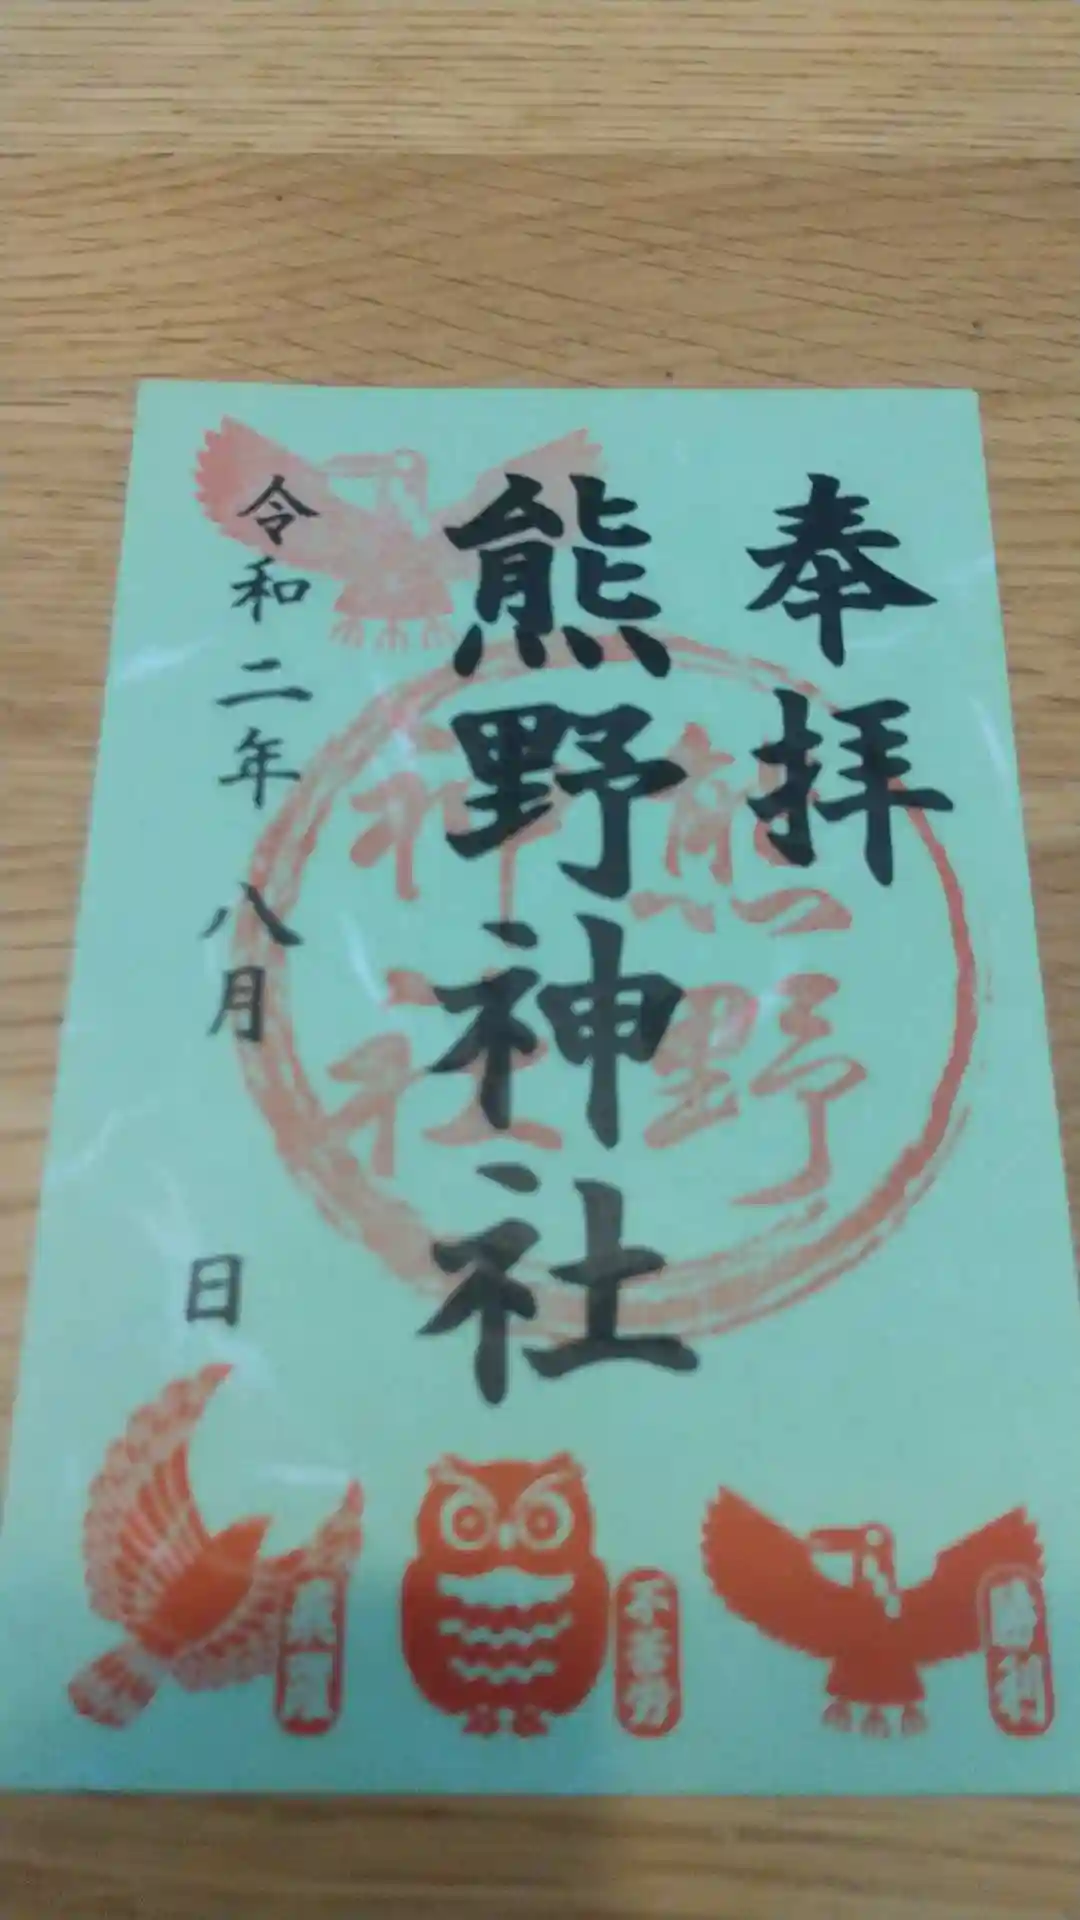 奉拝
熊野神社
令和二年 八月 日
熊野
神社
勝利
不苦労